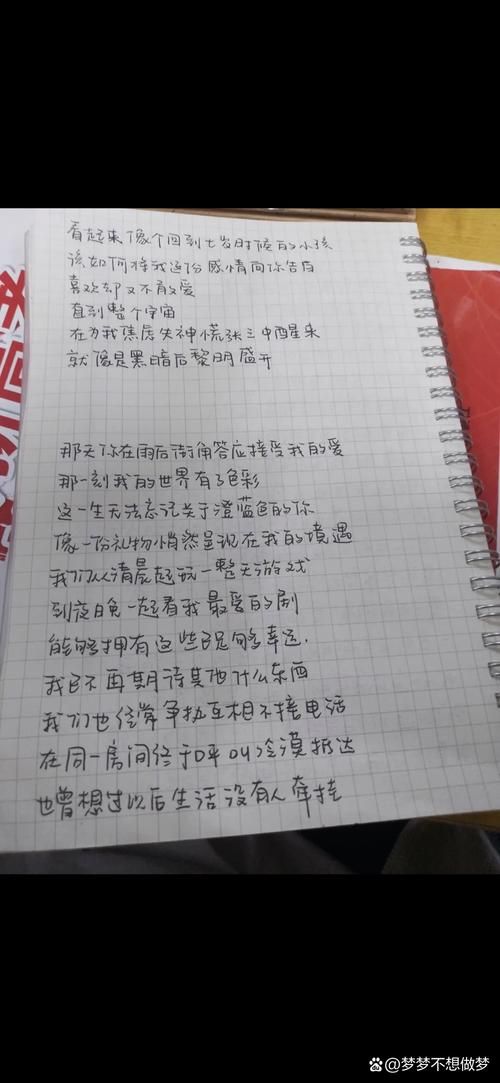 看起来像个回到七岁时候的小孩
该如何将我这份感情向你告白
喜欢却又不敢爱
直到整个宇宙
在为我焦虑失神慌张之中醒来
就像是黑暗后黎明盛开
那天你在雨后街角答应接受我的爱
那一刻我的世界有了色彩
这一生无法忘记关于澄蓝色的你
像一份礼物悄然呈现在我的境遇
我们从清晨起玩一整天游戏
到夜晚一起看我最爱的剧
能够拥有这些已足够幸运.
我已不再期待其他什么东西
我们也经常争执互相不接电话
在同一房间终于呼叫冷漠抵达
也曾想过以后生活没有人牵挂
@梦梦不想做梦